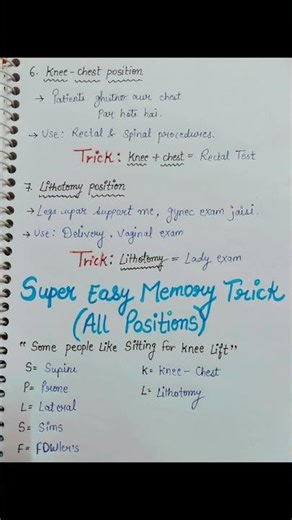 6. Knee-Chest position
→ Patients ghutno aur chest
Par hote hai.
→ Use: Rectal & Spinal procedures.
Trick: Knee + chest = Rectal Test
7. Lithotomy position
→ Legs upar support me, gynec exam jaisi.
→ Use: Delivery, Vaginal exam
Trick: Lithotomy = Lady exam
Super Easy Memory Trick
(All Positions)
"Some people Like Sitting for Knee Lift"
S= Supine
K= Knee-Chest
P= Prone
L= Lithotomy
L= Lateral
S= Sims
F= FOWler's